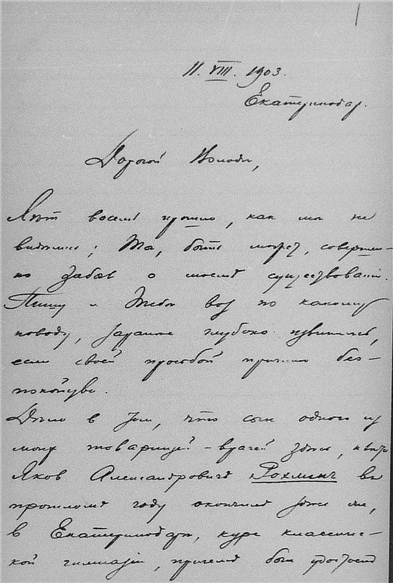 11. VIII. 1903.
Екатеринодар.
Дорогой Володя,
Лѣтъ восемь прошло, какъ мы не
видѣлись; Ты, быть можетъ, совершен-
но забылъ о моемъ существованіи.
Пишу я Тебѣ вотъ по какому
поводу, заранѣе глубоко извиняюсь,
если своей просьбой причиню без-
покойство.
Дѣло въ томъ, что сынъ одного изъ
моихъ товарищей-врачей здѣсь, нѣкто
Яковъ Александровичъ Рохлинъ въ
прошломъ году окончилъ здѣсь же,
въ Екатеринодарѣ, курсъ классичес-
кой гимназіи, причемъ былъ удостоенъ